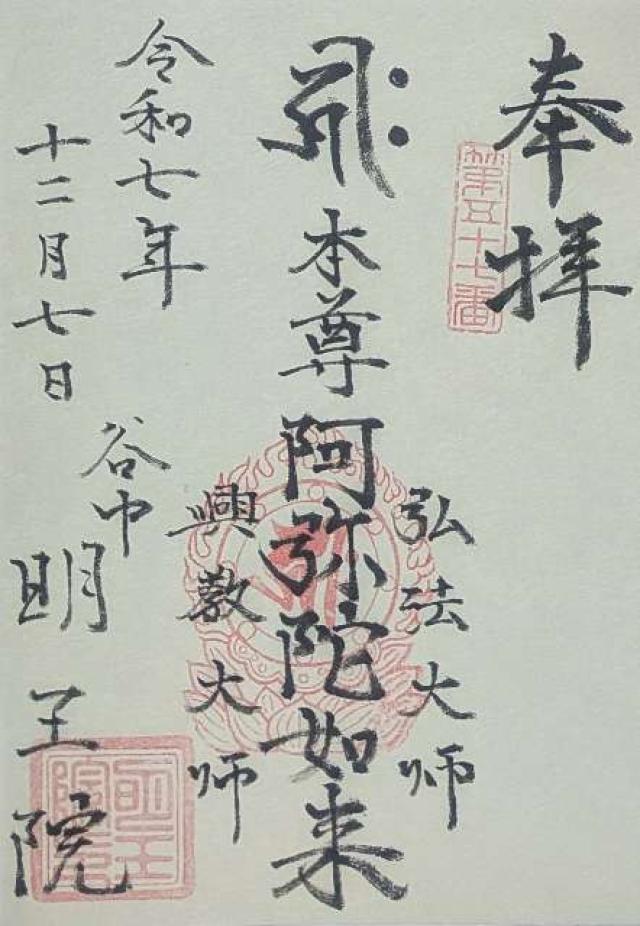 奉拝
第五十七番
弘法大師
𑖮𑖿𑖨𑖱𑖾
本尊阿弥陀如来
興教大師
令和七年
十二月七日
谷中
明王院
明王院印